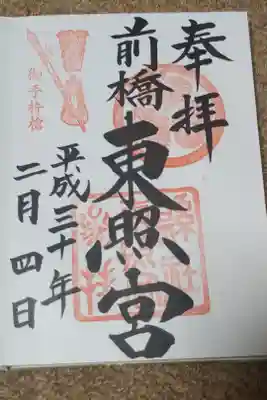 奉拝
前橋東照宮
平成三十年
二月四日
御手杵槍